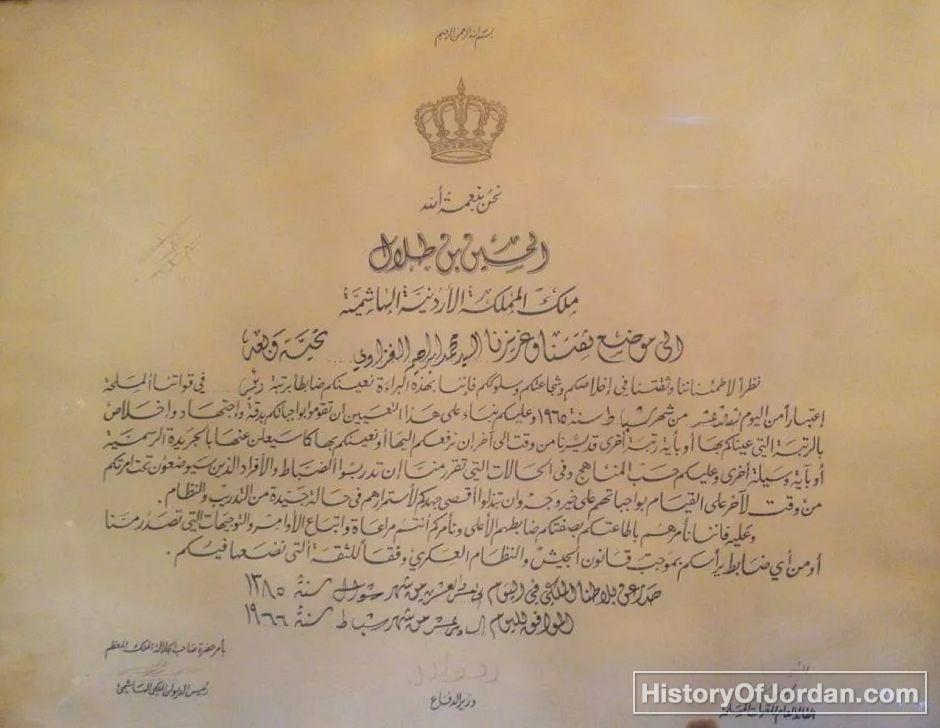 بسم الله الرحمن الرحيم
نحن بنعمة الله
الحسين بن طلال
ملك المملكة الأردنية الهاشمية
الى موضع ثقتنا وعزيزنا السيد محمد ابراهيم الغزاوي تحية وبعد
نظراً لاطمئناننا وثقتنا في إخلاصكم وشجاعتكم وسلوككم فإننا بهذه البراءة نعينكم ضابطاً برتبة رئيس في قواتنا المسلحة
اعتباراً من اليوم من شهر شباط سنة ١٩٦٥ وعليكم بناء على هذا التعيين ان تقوموا بواجباتكم بدقة واجتهاد وإخلاص
بالرتبة التي عينكم بها أو بأية رتبة أخرى قد يسرنا من وقت الى آخر ان نرفعكم اليها أو نعينكم بها كما سيعلن عنها بالجريدة الرسمية
أو بأية وسيلة أخرى وعليكم حسب المناهج وفي الحالات التي تقرر منا ان تدربوا الضباط والأفراد الذين سيوضعون تحت امرتكم
من وقت لآخر على القيام بواجباتهم على خير وجه وان تبذلوا أقصى جهدكم لاستمرارهم في حالة جيدة من التدريب والنظام .
وعليه فإننا نأمرهم باطاعتكم بصفتكم ضابطهم الأعلى ونأمركم أنتم مراعاة واتباع الأوامر والتوجيهات التي تصدر منا
أو من أي ضابط يرأسكم بموجب قانون الجيش والنظام العسكري وفقاً للثقة التي نضعها فيكم .
صدر عن بلاطنا الملكي في اليوم الخامس والعشرين من شهر شوال سنة ١٣٨٥
الموافق لليوم السادس عشر من شهر شباط سنة ١٩٦٦
بأمر حضرة صاحب الجلالة الملك المعظم
رئيس الديوان الملكي الهاشمي
وزير الدفاع
القائد العام للقوات المسلحة
HistoryOfJordan.com